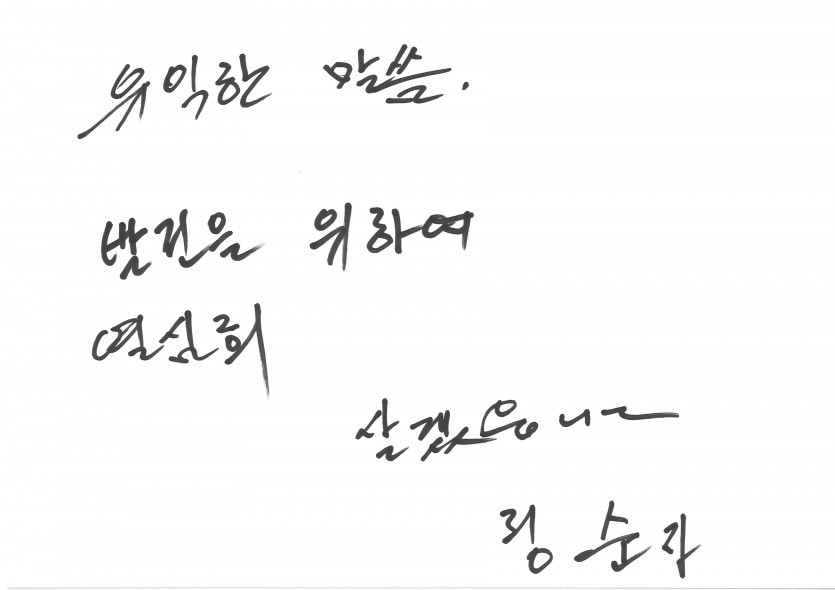 유익한 말씀.
발전을 위하여
열심희
살겠음니다
정순자